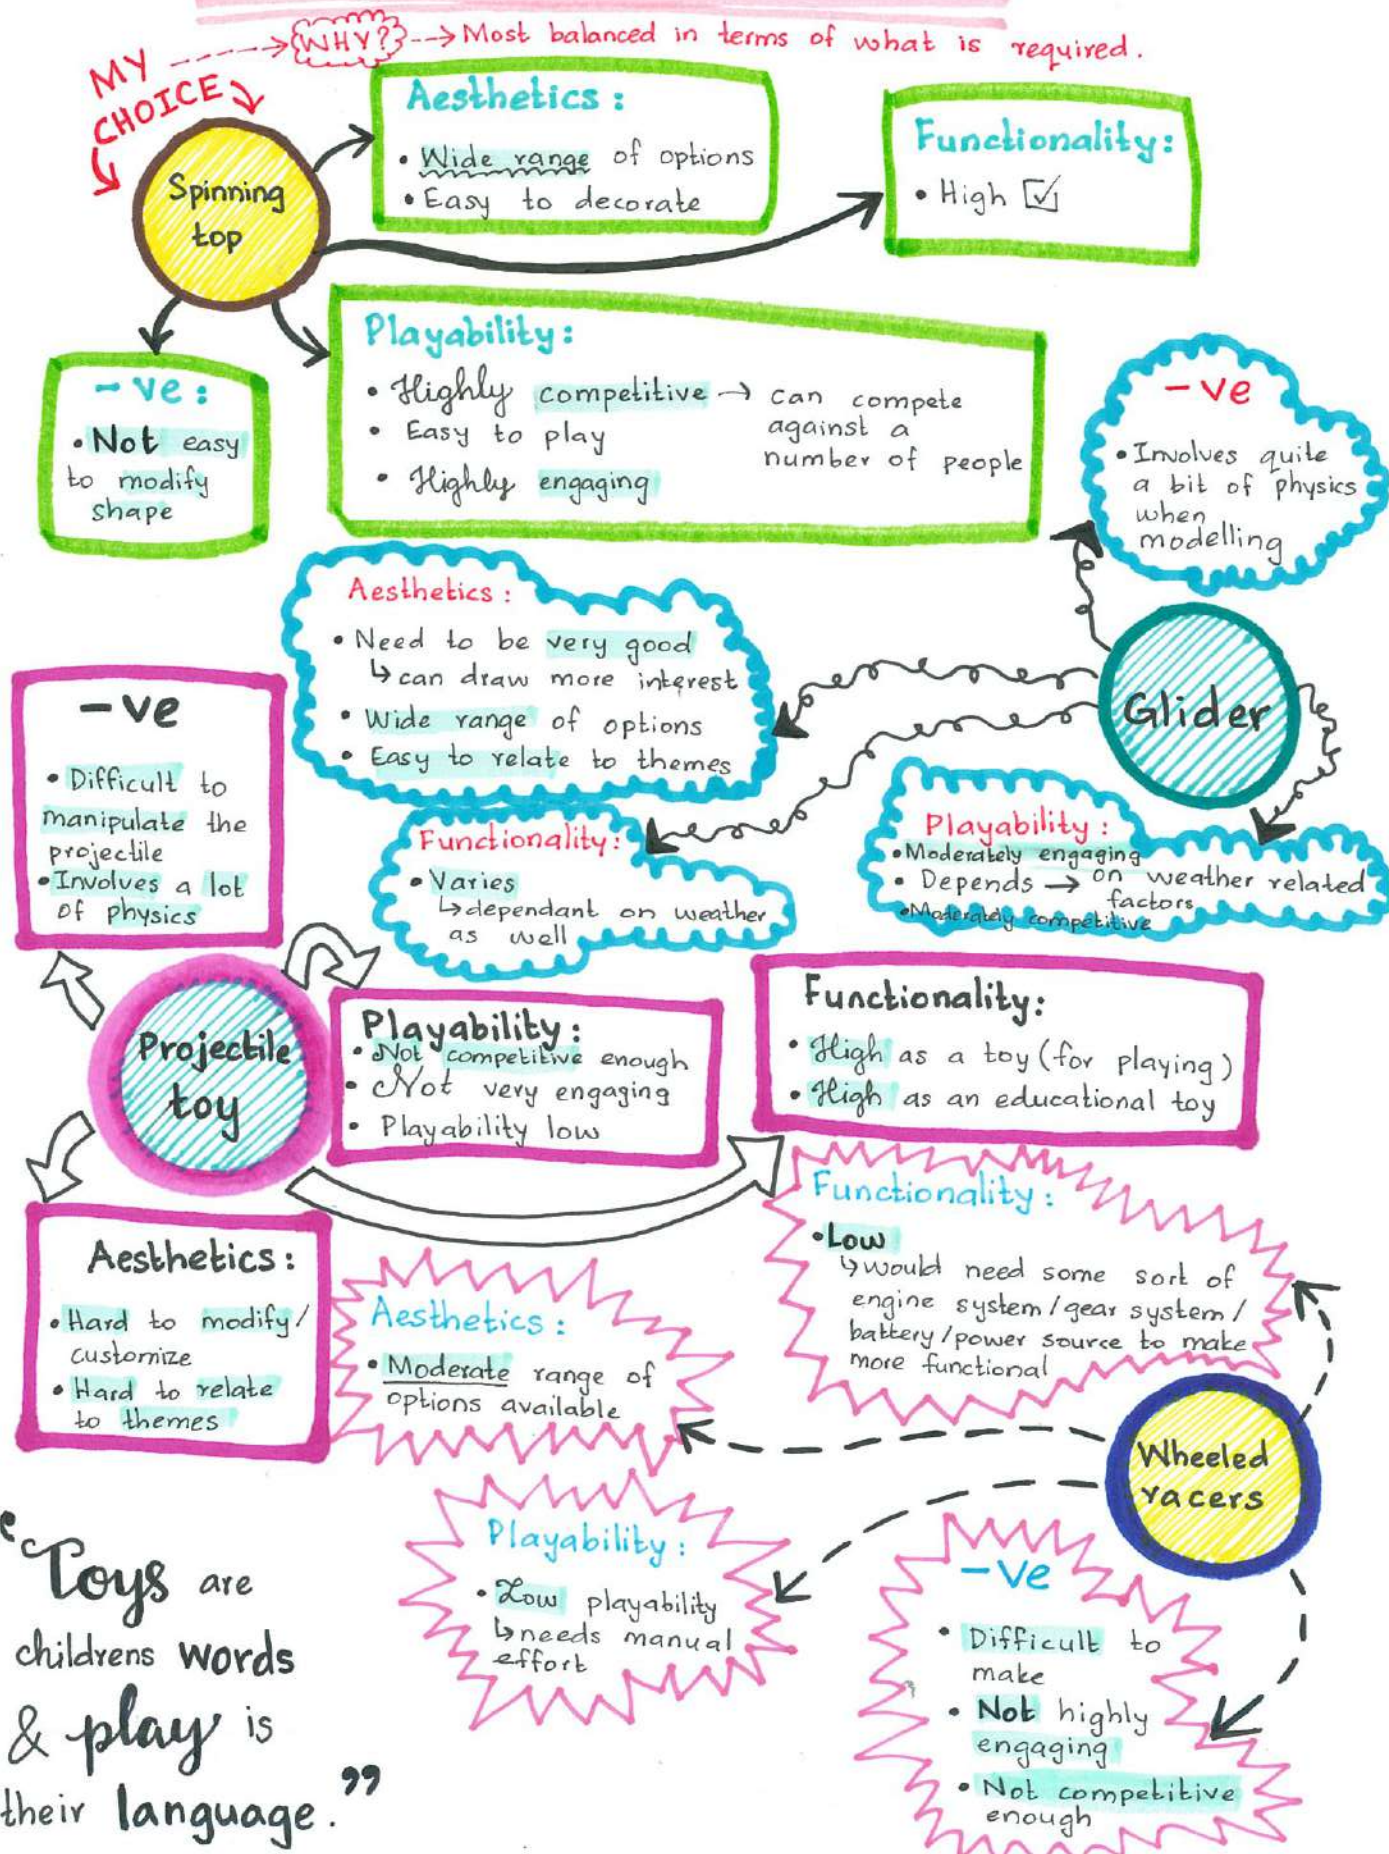 MY
CHOICE
WHY?
Most balanced in terms of what is required.
Spinning
top
Aesthetics :
• Wide range of options
• Easy to decorate
Functionality:
• High
Playability:
• Highly competitive → can compete
against a
number of people
• Easy to play
• Highly engaging
- ve :
• Not easy
to modify
shape
Glider
- ve
• Involves quite
a bit of physics
when
modelling
Aesthetics :
• Need to be very good
↳ can draw more interest
• Wide range of options
• Easy to relate to themes
Functionality:
• Varies
↳ dependant on weather
as well
Playability :
• Moderately engaging
• Depends → on weather related
factors
• Moderately competitive
Projectile
toy
- ve
• Difficult to
manipulate the
projectile
• Involves a lot
of physics
Playability:
• Not competitive enough
• Not very engaging
• Playability low
Functionality:
• High as a toy (for playing)
• High as an educational toy
Aesthetics :
• Hard to modify/
customize
• Hard to relate
to themes
Wheeled
racers
Functionality :
• Low
↳ would need some sort of
engine system/gear system/
battery/power source to make
more functional
Aesthetics :
• Moderate range of
options available
Playability :
• Low playability
↳ needs manual
effort
- ve
• Difficult to
make
• Not highly
engaging
• Not competitive
enough
“Toys are
childrens words
& play is
their language.”